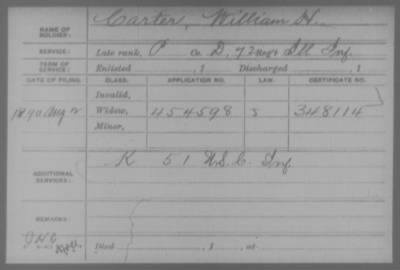 NAME OF SOLDIER: Carter, William H.
SERVICE: Late rank, P Co. D, 72 Reg't Ill Inf.
TERM OF SERVICE: Enlisted , 1 Discharged , 1
DATE OF FILING. CLASS. APPLICATION NO. LAW. CERTIFICATE NO.
Invalid,
1890 Aug Widow, 454598 348114
Minor,
ADDITIONAL SERVICES: K 51 U.S.C. Inf
REMARKS:
Died , 1 , at